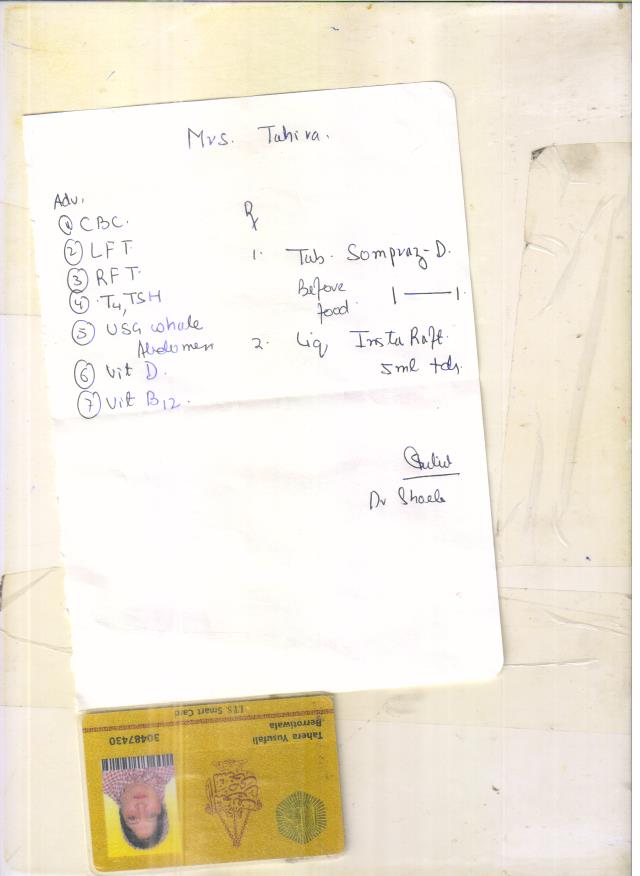 Mrs. Tahira.
Adv.
① CBC.
② LFT
③ RFT.
④ T4, TSH
⑤ USG whole
Abdomen
⑥ Vit D.
⑦ Vit B12.
℞
1. Tab. Sompraz-D.
Before
food. 1——1.
2. Liq Insta Raft.
5ml tds.
Dr Shaeb
ITS Smart Card
Tahera Yusufali
Berrotiwala
30487430